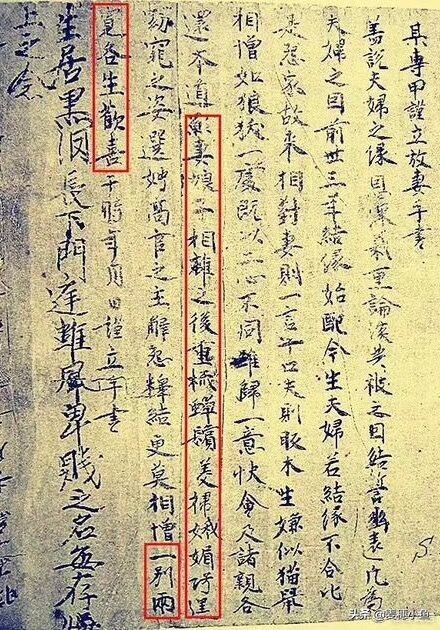 某專甲謹立放妻手書
蓋說夫婦之緣恩深義重論談共被之因結誓幽遠凡為
夫婦之因前世三年結緣始配今生夫婦若結緣不合比
是怨家故來相對妻則一言十口夫則眅木生嫌似猫鼠
相憎如狼犺一處既以二心不同難歸一意快會及諸親各
還本道願妻娘子相離之後重梳蟬鬢美掃娥媚巧逞
窈窕之姿選娉高官之主解怨釋結更莫相憎一別兩
寬各生歡喜于時年月日謹立手書
生居黑長下門庭雖卑賤之名存
上之念
S.
头条